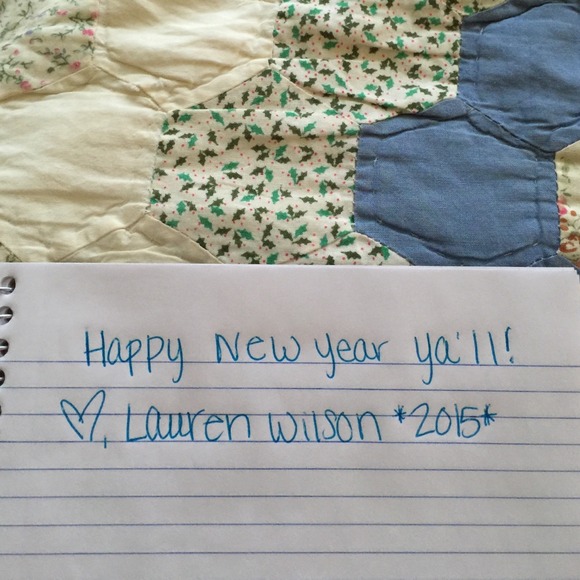 Happy New Year ya'll!
♡, Lauren Wilson *2015*